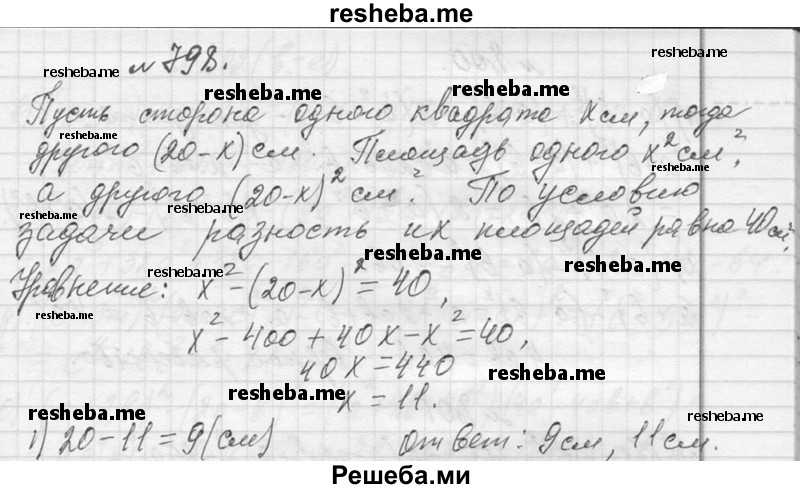 resheba.me
№ 798.
resheba.me
resheba.me
Пусть сторона одного квадрата x см, тогда
resheba.me
resheba.me
другого (20-x) см. Площадь одного x² см²,
resheba.me
а другого (20-x)² см². По условию
resheba.me
resheba.me
задачи разность их площадей равна 40 см²,
resheba.me
resheba.me
resheba.me
Уравнение: x² - (20-x)² = 40,
resheba.me
x² - 400 + 40x - x² = 40,
40x = 440
resheba.me
resheba.me
x = 11.
resheba.me
1) 20-11 = 9 (см) ответ: 9 см, 11 см.
resheba.me
Решеба.ми